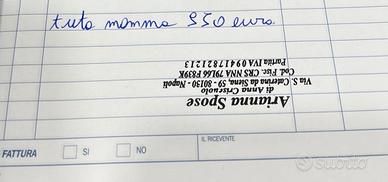 tuta mamma 550 euro.
Arianna Spose
di Anna Criscuolo
Via S. Caterina da Siena, 59 - 80130 - Napoli
Cod. Fisc. CRS NNA 79L66 F839K
Partita IVA 09417821213
IL RICEVENTE
FATTURA SI NO
subito